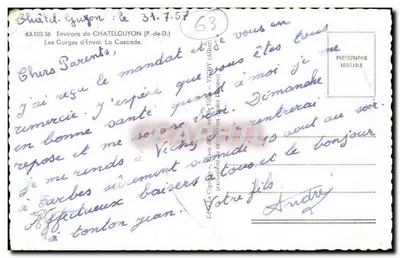 Châtel-Guyon le 31.7.57
63
63.103.36 Environs de CHATELGUYON (P.-de-D.)
Les Gorges d'Enval. La Cascade.
PHOTOGRAPHIE
VERITABLE
Chers Parents,
J'ai reçu le mandat et je vous en
remercie. J'espère que vous êtes tous
en bonne santé, quand à moi je me
repose et me soigne Dimanche
je me rends à Vichy rentrerai
à Tarbes sûrement samedi 10 août au soir.
Affectueux baisers à tous et le bonjour
à tonton Jean. Votre fils
André